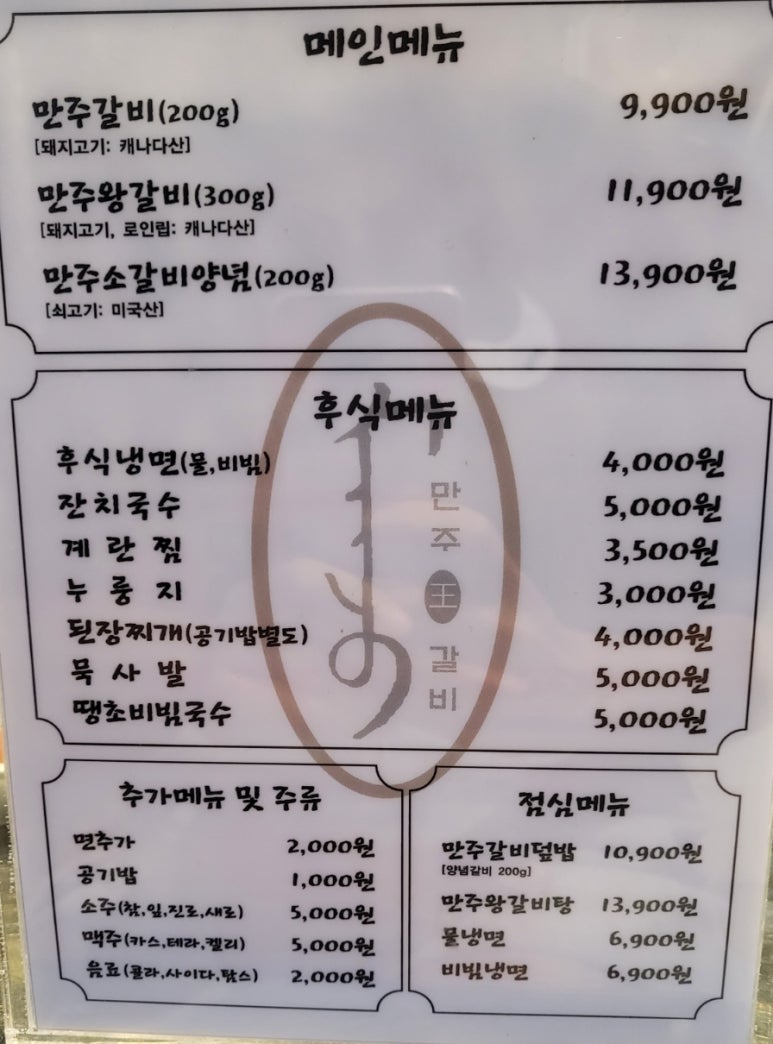 메인메뉴
만주갈비(200g) 9,900원
[돼지고기: 캐나다산]
만주왕갈비(300g) 11,900원
[돼지고기, 로인립: 캐나다산]
만주소갈비양념(200g) 13,900원
[쇠고기: 미국산]
후식메뉴
후식냉면(물,비빔) 4,000원
잔치국수 5,000원
계란찜 3,500원
누룽지 3,000원
된장찌개(공기밥별도) 4,000원
묵사발 5,000원
땡초비빔국수 5,000원
만주王갈비
추가메뉴 및 주류
면추가 2,000원
공기밥 1,000원
소주(참,잎,진로,새로) 5,000원
맥주(카스,테라,켈리) 5,000원
음료(콜라,사이다,탐스) 2,000원
점심메뉴
만주갈비덮밥 10,900원
[양념갈비 200g]
만주왕갈비탕 13,900원
물냉면 6,900원
비빔냉면 6,900원